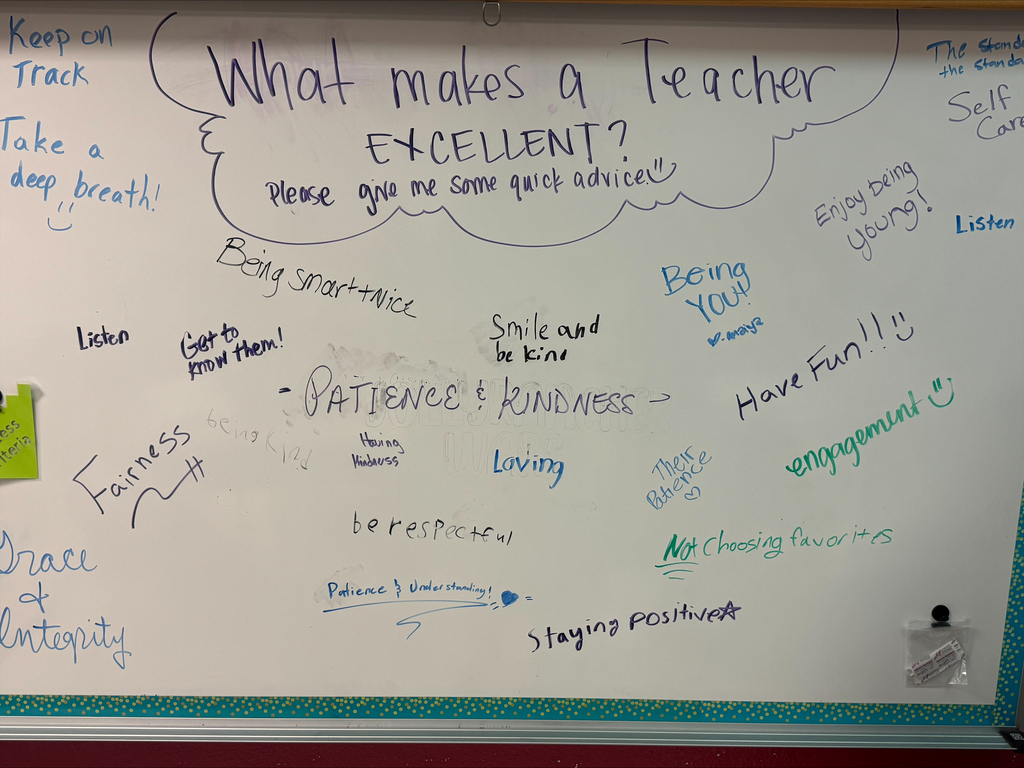 What makes a Teacher
EXCELLENT?
Please give me some quick advice!
Keep on
Track
Take a
deep breath!
The
the
Self
Care
Enjoy being
young!
Listen
Being smart + Nice
Being
YOU!
Listen
Get to
know them!
Smile and
be kind
Have Fun!!
- PATIENCE & KINDNESS -
engagement
being kind
Having
Kindness
Loving
Their
Patience
Fairness
be respectful
Not choosing favorites
Grace
&
Integrity
Patience & Understanding!
Staying positive